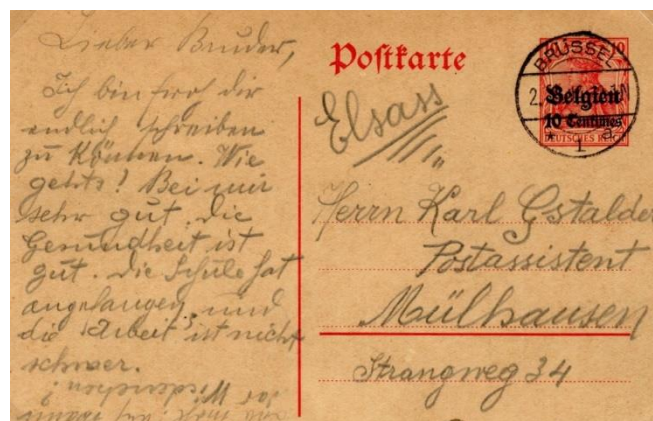 Lieber Bruder,
Ich bin froh dir
endlich schreiben
zu können. Wie
gehts! Bei mir
sehr gut. Die
Gesundheit ist
gut. Die Schule hat
angefangen, und
die Arbeit ist nicht
schwer.
Postkarte
Elsass
BRÜSSEL
2.
Belgien
10 Centimes
DEUTSCHES REICH
10
* 1 a
Herrn Karl Gstalder
Postassistent
Mülhausen
Strangweg 34